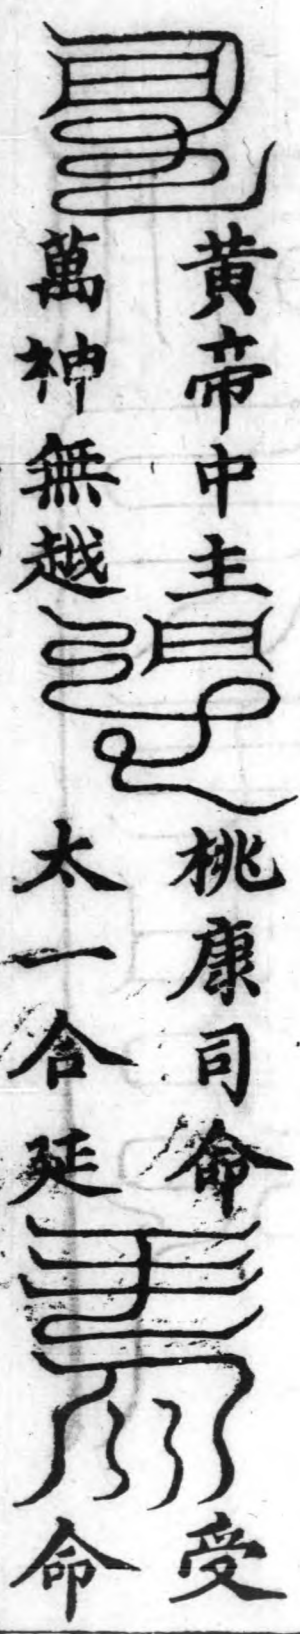 黃帝中主
萬神無越
桃康司命
太一合延
受
命